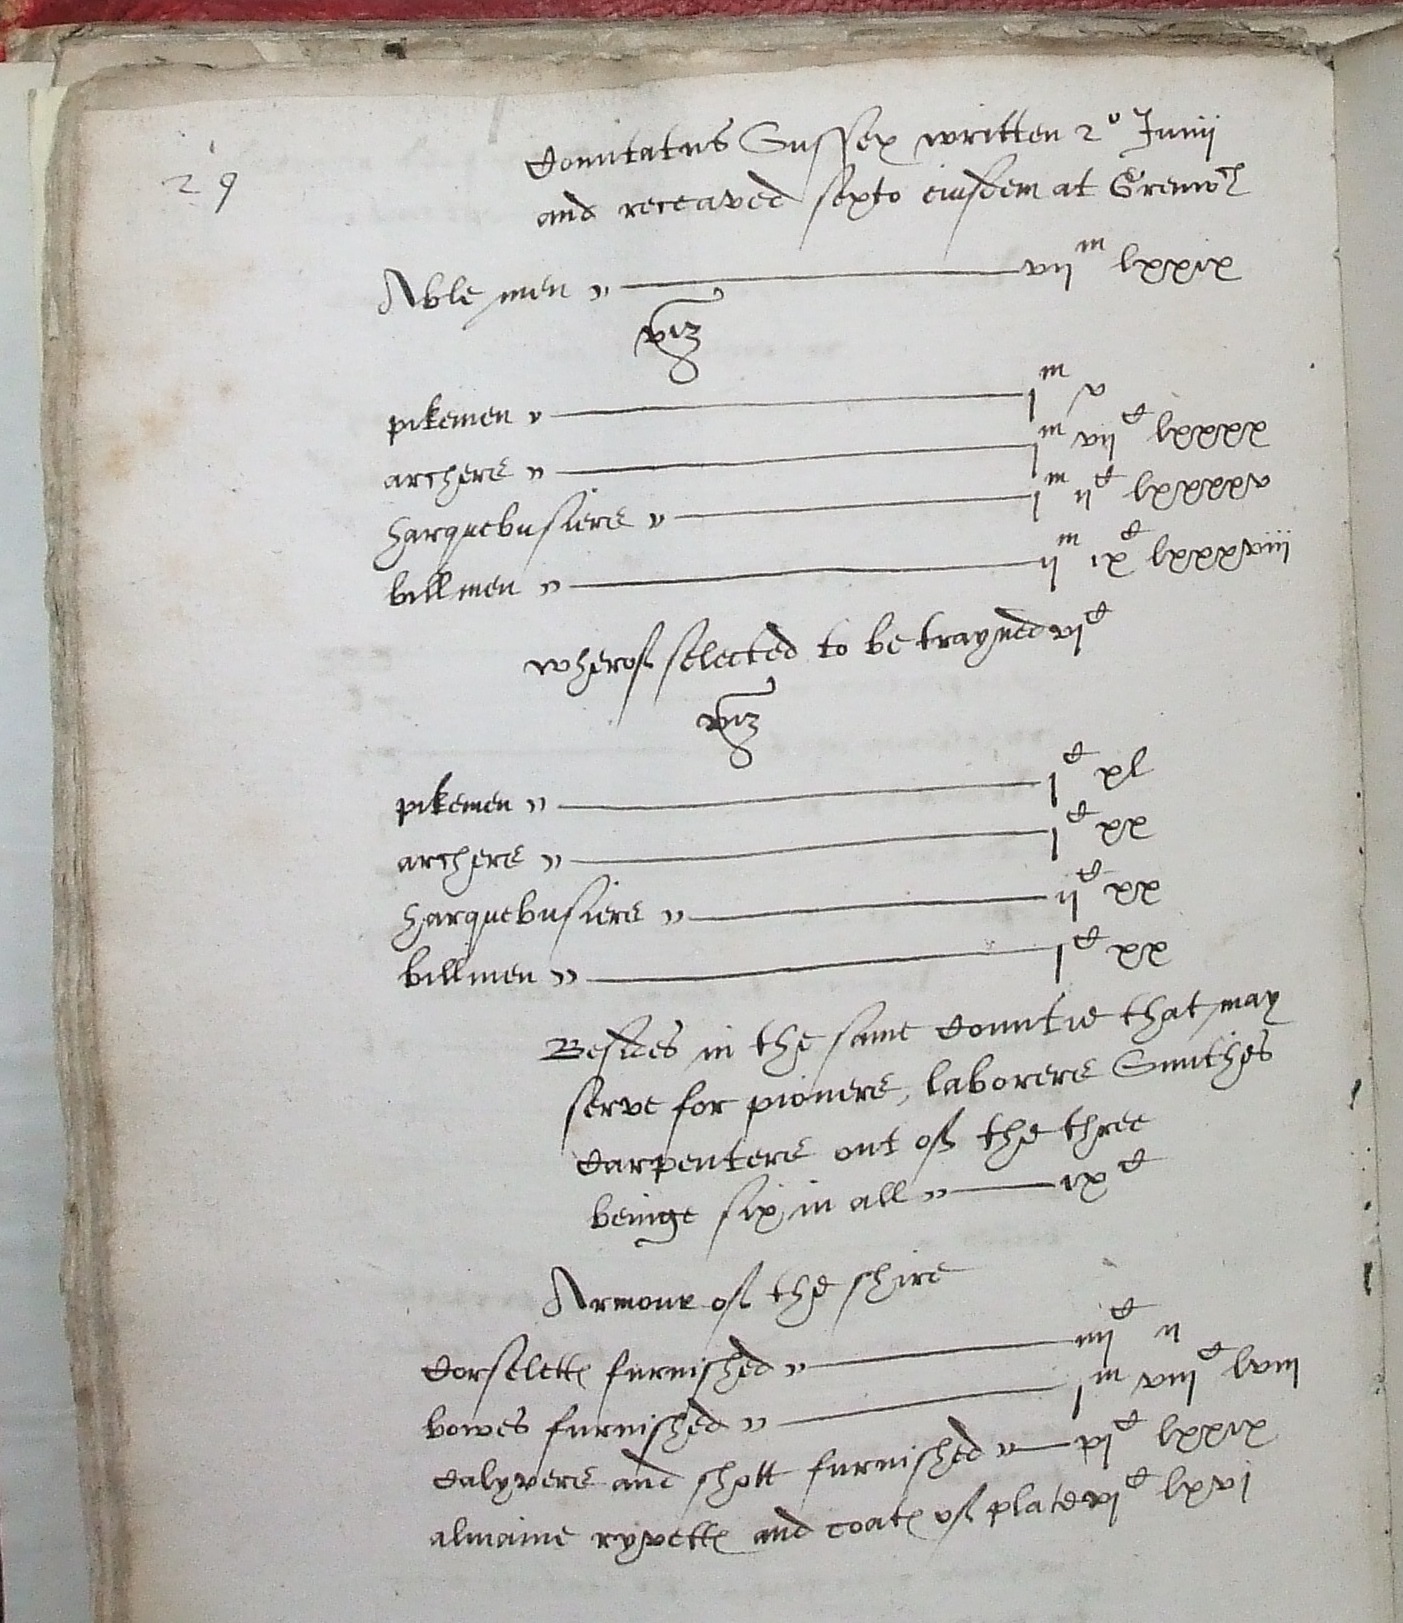 29
Comitatus Sussex written 2º Junij
and receaved sexto eiusdem at Grenwch
Able men vii m lxxix
viz
pikemen i m v
archers i m vii c lxxxx
harquebusiers i m ii c lxxxxv
billmen ii m ix c lxxxviii
wherof selected to be trayned vi c
viz
pikemen i c xl
archers i c xx
harquebusiers ii c xx
billmen i c xx
Besides in the same Countie that may
serve for pioners, laborers Smithes
Carpenters out of the three
beinge six in all ix c
Armour of the shire
Corseletts furnished iiii c ii
bowes furnished i m viii c lviii
Calyvers and shott furnished xi c lxxix
almaine ryvetts and coates of plate vi c lxvi